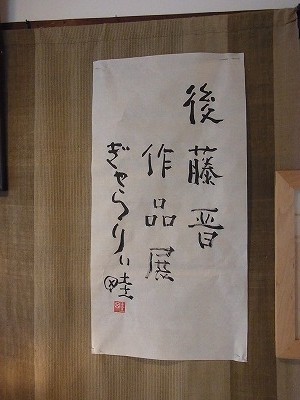 後藤晋
作品展
ぎゃらりい畦